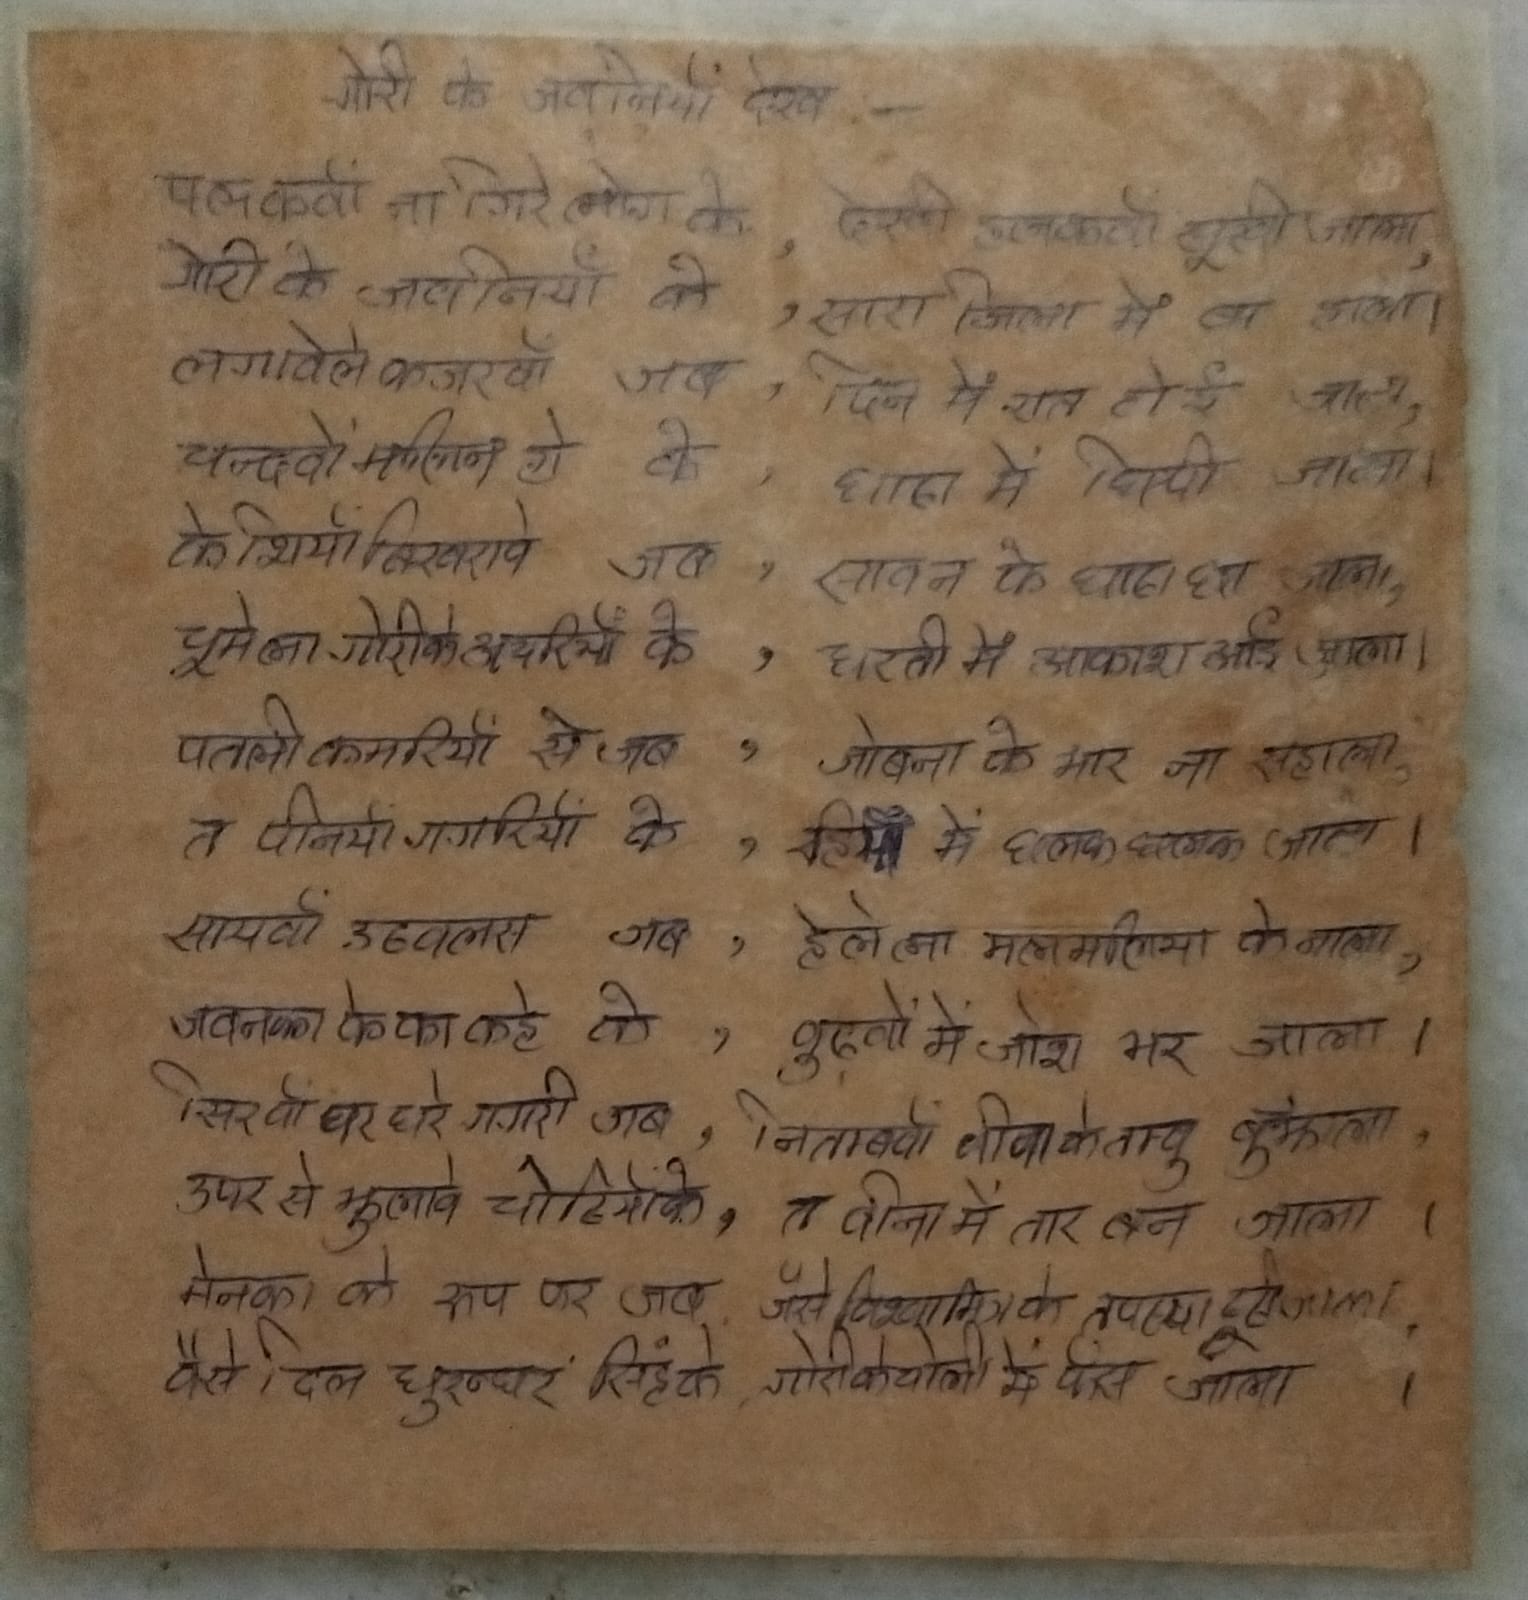 गोरी के जवनियाँ देख :—
पलकवाँ ना गिरे लोग के, देखी हलकवाँ सूखी जाला,
गोरी के जवनियाँ के, सारा जिला में बा हाला।
लगावेले कजरवाँ जब, दिन में रात होई जाला,
चन्दवाँ मलिन हो के, घाटा में छिपी जाला।
केशियाँ बिखरावे जब, सावन के घाटा छा जाला,
चूमेला गोरी के अचरियाँ के, धरती में आकाश आई जाला।
पतली कमरियाँ से जब, जोबना के भार ना सहाला,
त पनियाँ गगरियाँ के, में छलक छलक जाला।
सायवाँ उठवलस जब, हेलेला मलमलिया के नाला,
जवनका के का कहे के, बुढ़वों में जोश भर जाला।
सिरवाँ पर धरे गगरी जब, नितंबवाँ वीणा के तान्बु बुझाला,
उपर से झुलावे चोटियाँ के, त वीना में तार बन जाला।
मेनका के रूप पर जब, जैसे विश्वामित्र के तपस्या टूटी जाला,
वैसे दिल धुरन्धर सिंह के, गोरी के चोली में फंस जाला।